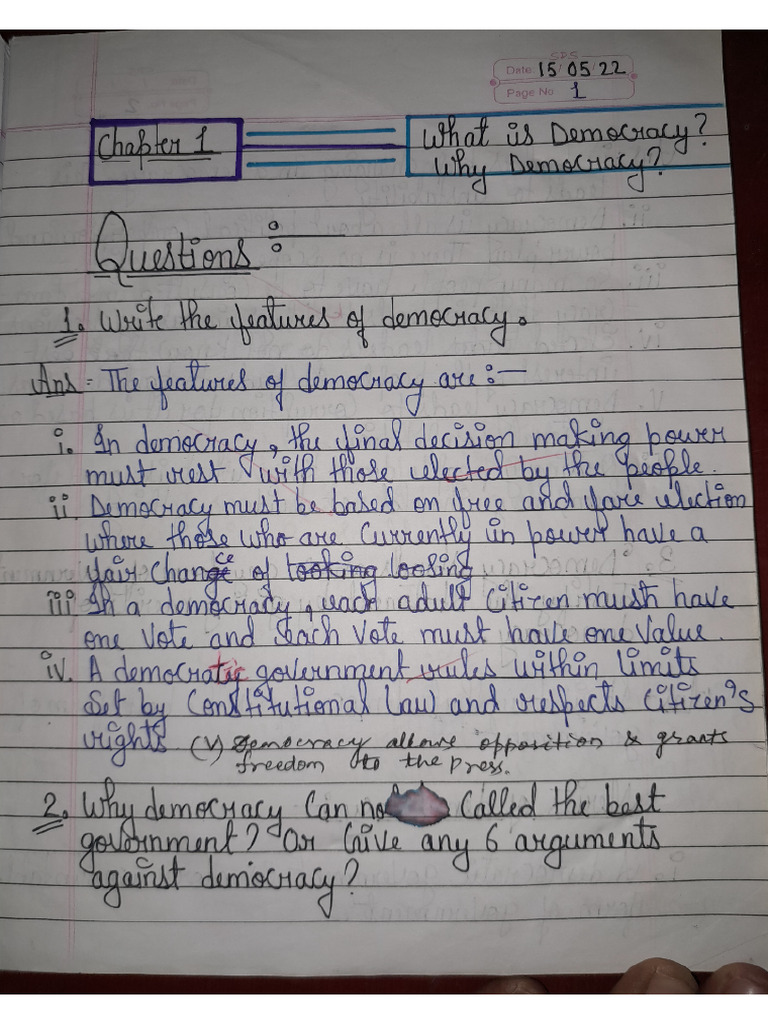 SDS
Date 15 05 22
Page No. 1
Chapter 1
What is Democracy?
Why Democracy?
Questions :
1. Write the features of democracy.
Ans - The features of democracy are :-
i. In democracy, the final decision making power
must rest with those elected by the people.
ii. Democracy must be based on free and fare election
where those who are currently in power have a
fair chance of tooking loosing
iii In a democracy, each adult citizen mush have
one vote and each vote must have one value.
iv. A democratic government rules within limits
set by constitutional law and respects citizen's
rights (v) Democracy allows opposition & grants
freedom to the press.
2. Why democracy can no called the best
government? Or Give any 6 arguments
against democracy?